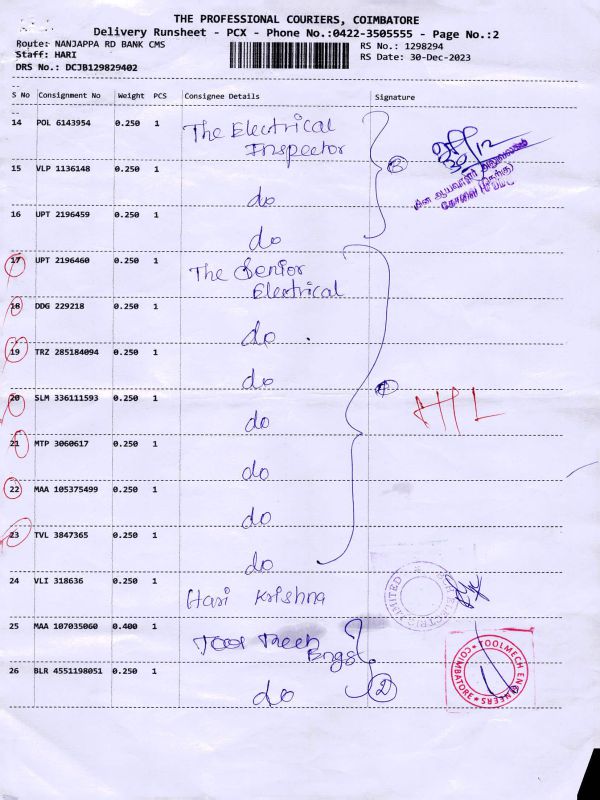 THE PROFESSIONAL COURIERS, COIMBATORE
Delivery Runsheet - PCX - Phone No.:0422-3505555 - Page No.:2
Route: NANJAPPA RD BANK CMS
RS No.: 1298294
Staff: HARI
RS Date: 30-Dec-2023
DRS No.: DCJB129829402
S No Consignment No Weight PCS Consignee Details Signature
14 POL 6143954 0.250 1 The Electrical
Inspector
15 VLP 1136148 0.250 1 do
16 UPT 2196459 0.250 1 do
17 UPT 2196460 0.250 1 The Senior
Electrical
18 DDG 229218 0.250 1 do
19 TRZ 285184094 0.250 1 do
20 SLM 336111593 0.250 1 do
21 MTP 3060617 0.250 1 do
22 MAA 105375499 0.250 1 do
23 TVL 3847365 0.250 1 do
24 VLI 318636 0.250 1 Hari Krishna
25 MAA 107035060 0.400 1 Tool
Engs
26 BLR 4551198051 0.250 1 do 2
TOOLMECH ENGINEERS
COIMBATORE